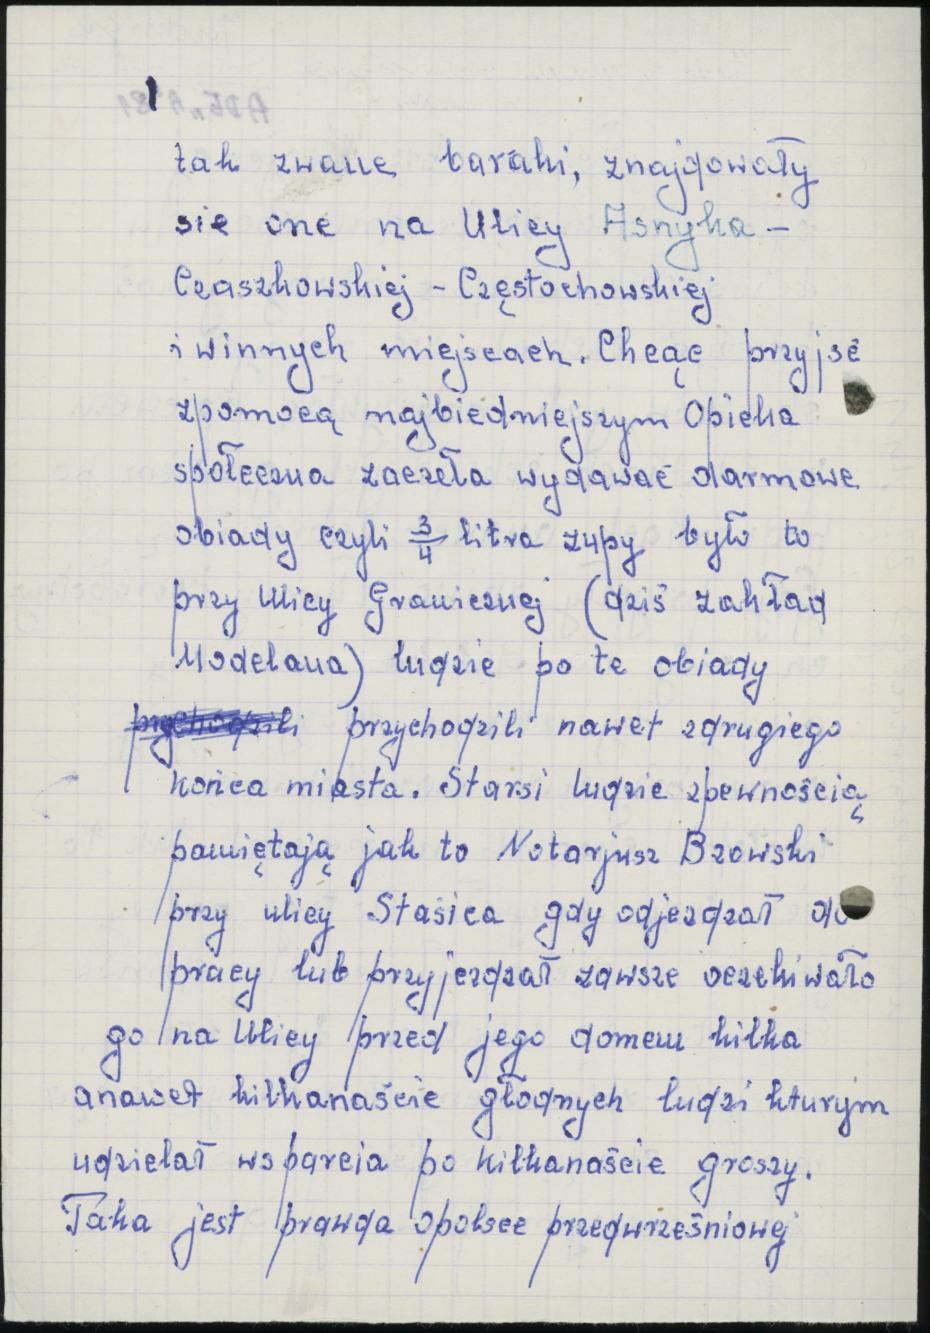 tak zwane baraki, znajdowały
sie one na Ulicy Asnyka –
Czaszkowskiej – Częstochowskiej
i winnych miejscach. Chcąc przyjsć
zpomocą najbiedniejszym Opieka
społeczna zaczeła wydawać darmowe
obiady czyli 3/4 litra zupy było to
przy Ulicy Granicznej (dziś zakład
Modelana) ludzie po te obiady
prychodzili przychodzili nawet zdrugiego
końca miasta. Starsi ludzie zpewnością
pamiętają jak to Notarjusz Bzowski
przy ulicy Stasica gdy odjezdzał do
pracy lub przyjezdzał zawsze oczekiwało
go na Ulicy przed jego domem kilka
anawet kilkanaście głodnych ludzi kturym
udzielał wsparcia po kilkanaście groszy.
Taka jest prawda opolsce przedwrześniowej